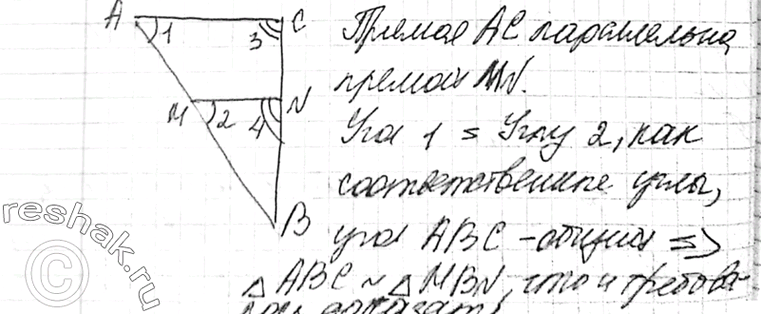 A 1 3 C
Прямая AC параллельна
прямой MN.
M 2 4 N
Угол 1 = Углу 2, как
соответственные углы,
B
угол ABC - общий =>
△ ABC ~ △ MBN, что и требова-
лось доказать
reshak.ru
©